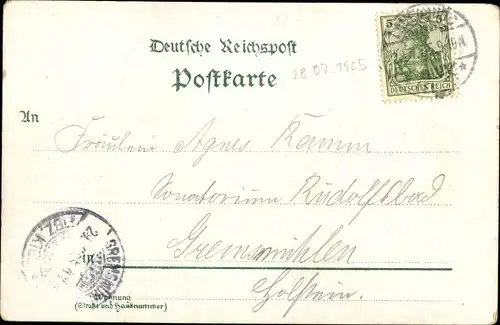 5 5
DEUTSCHES REICH
Deutsche Reichspost
Postkarte
28 07. 1905
An
Fräulein Agnes Kamm
Sanatorium Rudolfsbad
Gremsmühlen
in
Holstein.
Wohnung
(Straße und Hausnummer)
GREMSMÜHLEN